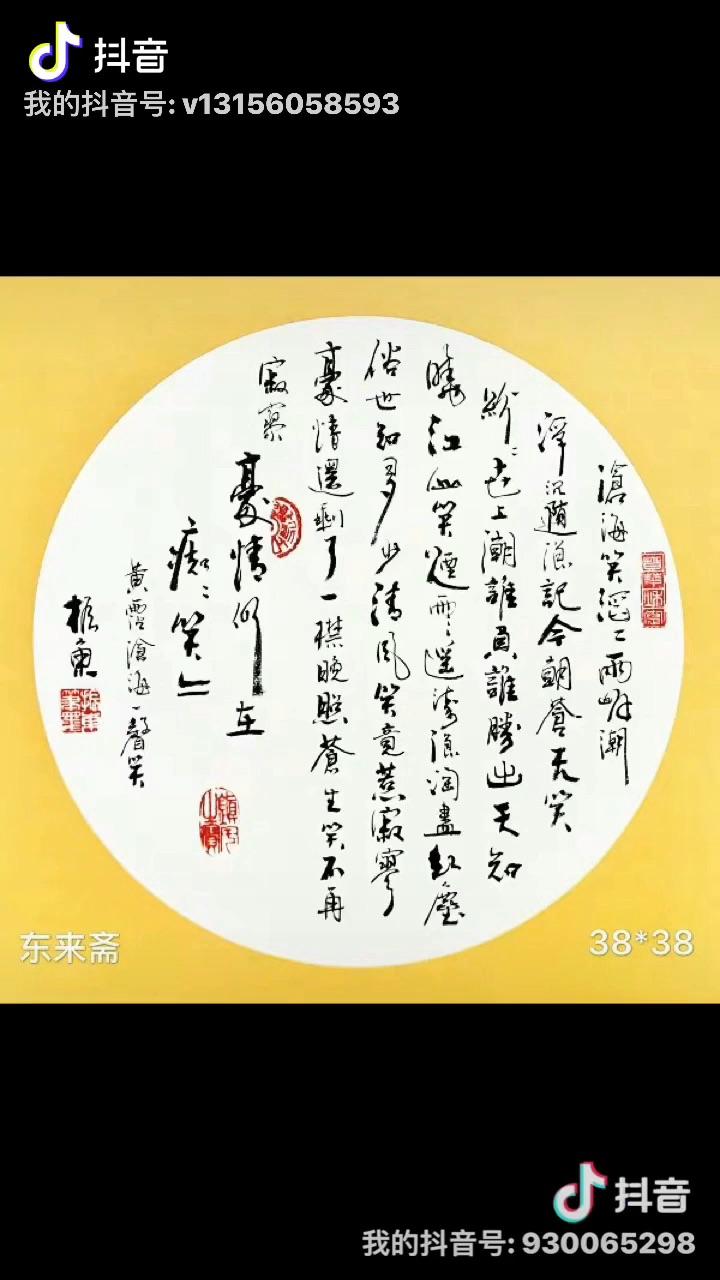 抖音
我的抖音号: v13156058593
滄海笑滔〻兩岸潮
浮沉隨浪記今朝蒼天笑
紛〻世上潮誰負誰勝出天知
曉江山笑煙雨遥濤浪淘盡紅塵
俗世知多少清風笑竟惹寂寥
豪情還剩了一襟晚照蒼生笑不再
寂寞
豪情仍在
痴〻笑〻
黃霑滄海一聲笑
振東
东来斋
38*38
抖音
我的抖音号: 930065298